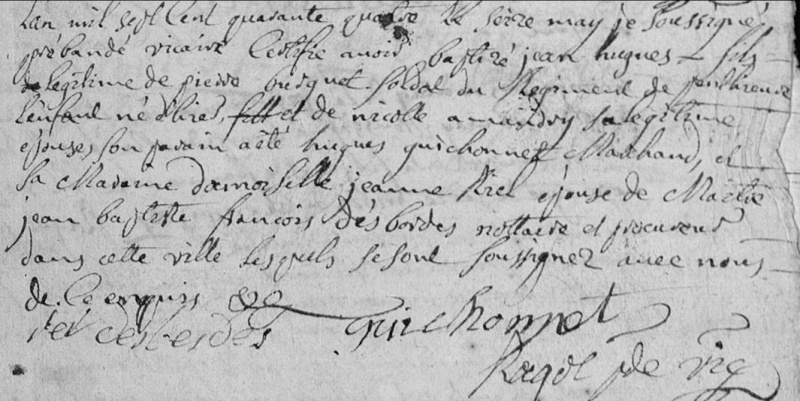 Lan mil sept Cent quarante quatre le seize may je soussigné
prébandé vicaire Certifie avoir baptizé jean hugues fils
legitime de pierre busquet soldat du Regiment de penthievre
l'enfant né d'hier, et de nicolle amandry sa legitime
epouse son parain a été hugues quichonnet Marchand, et
sa Maraine damoiselle jeanne epouse de Maitre
jean baptiste francois désbordes nottaire et procureur
dans cette ville lesquels se sont soussignez avec nous
de Ce enquis &c
desbordes quichonnet
Ragot pde vic